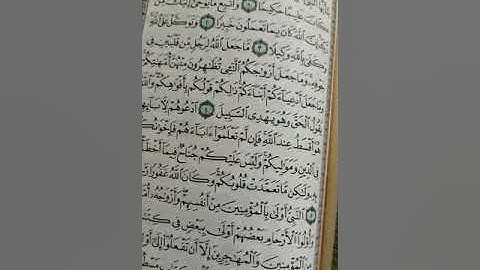 كَانَ عَلِيمًا حَكِيمًا ١ وَٱتَّبِعْ مَا يُوحَىٰٓ إِلَيْكَ مِن
إِنَّ ٱللَّهَ كَانَ بِمَا تَعْمَلُونَ خَبِيرًا ٢ وَتَوَكَّلْ عَلَى ٱللَّهِ
وَكَفَىٰ بِٱللَّهِ وَكِيلًا ٣ مَّا جَعَلَ ٱللَّهُ لِرَجُلٍ مِّن قَلْبَيْنِ فِى
جَوْفِهِۦ وَمَا جَعَلَ أَزْوَٰجَكُمُ ٱلَّٰٓـِٔى تُظَٰهِرُونَ مِنْهُنَّ أُمَّهَٰتِكُمْ
وَمَا جَعَلَ أَدْعِيَآءَكُمْ أَبْنَآءَكُمْ ذَٰلِكُمْ قَوْلُكُم بِأَفْوَٰهِكُمْ وَٱللَّهُ
يَقُولُ ٱلْحَقَّ وَهُوَ يَهْدِى ٱلسَّبِيلَ ٤ ٱدْعُوهُمْ لِءَابَآئِهِمْ
هُوَ أَقْسَطُ عِندَ ٱللَّهِ فَإِن لَّمْ تَعْلَمُوٓا۟ ءَابَآءَهُمْ فَإِخْوَٰنُكُمْ
فِى ٱلدِّينِ وَمَوَٰلِيكُمْ وَلَيْسَ عَلَيْكُمْ جُنَاحٌ فِيمَآ أَخْطَأْ
بِهِۦ وَلَٰكِن مَّا تَعَمَّدَتْ قُلُوبُكُمْ وَكَانَ ٱللَّهُ غَفُورًا
ٱلنَّبِىُّ أَوْلَىٰ بِٱلْمُؤْمِنِينَ مِنْ أَنفُسِهِمْ وَأَزْوَٰجُهُۥٓ
وَأُو۟لُوا۟ ٱلْأَرْحَامِ بَعْضُهُمْ أَوْلَىٰ بِبَعْضٍ فِى
مِنَ ٱلْمُؤْمِنِينَ وَٱلْمُهَٰجِرِينَ إِلَّآ أَن تَفْعَلُوٓا۟ إِلَىٰٓ